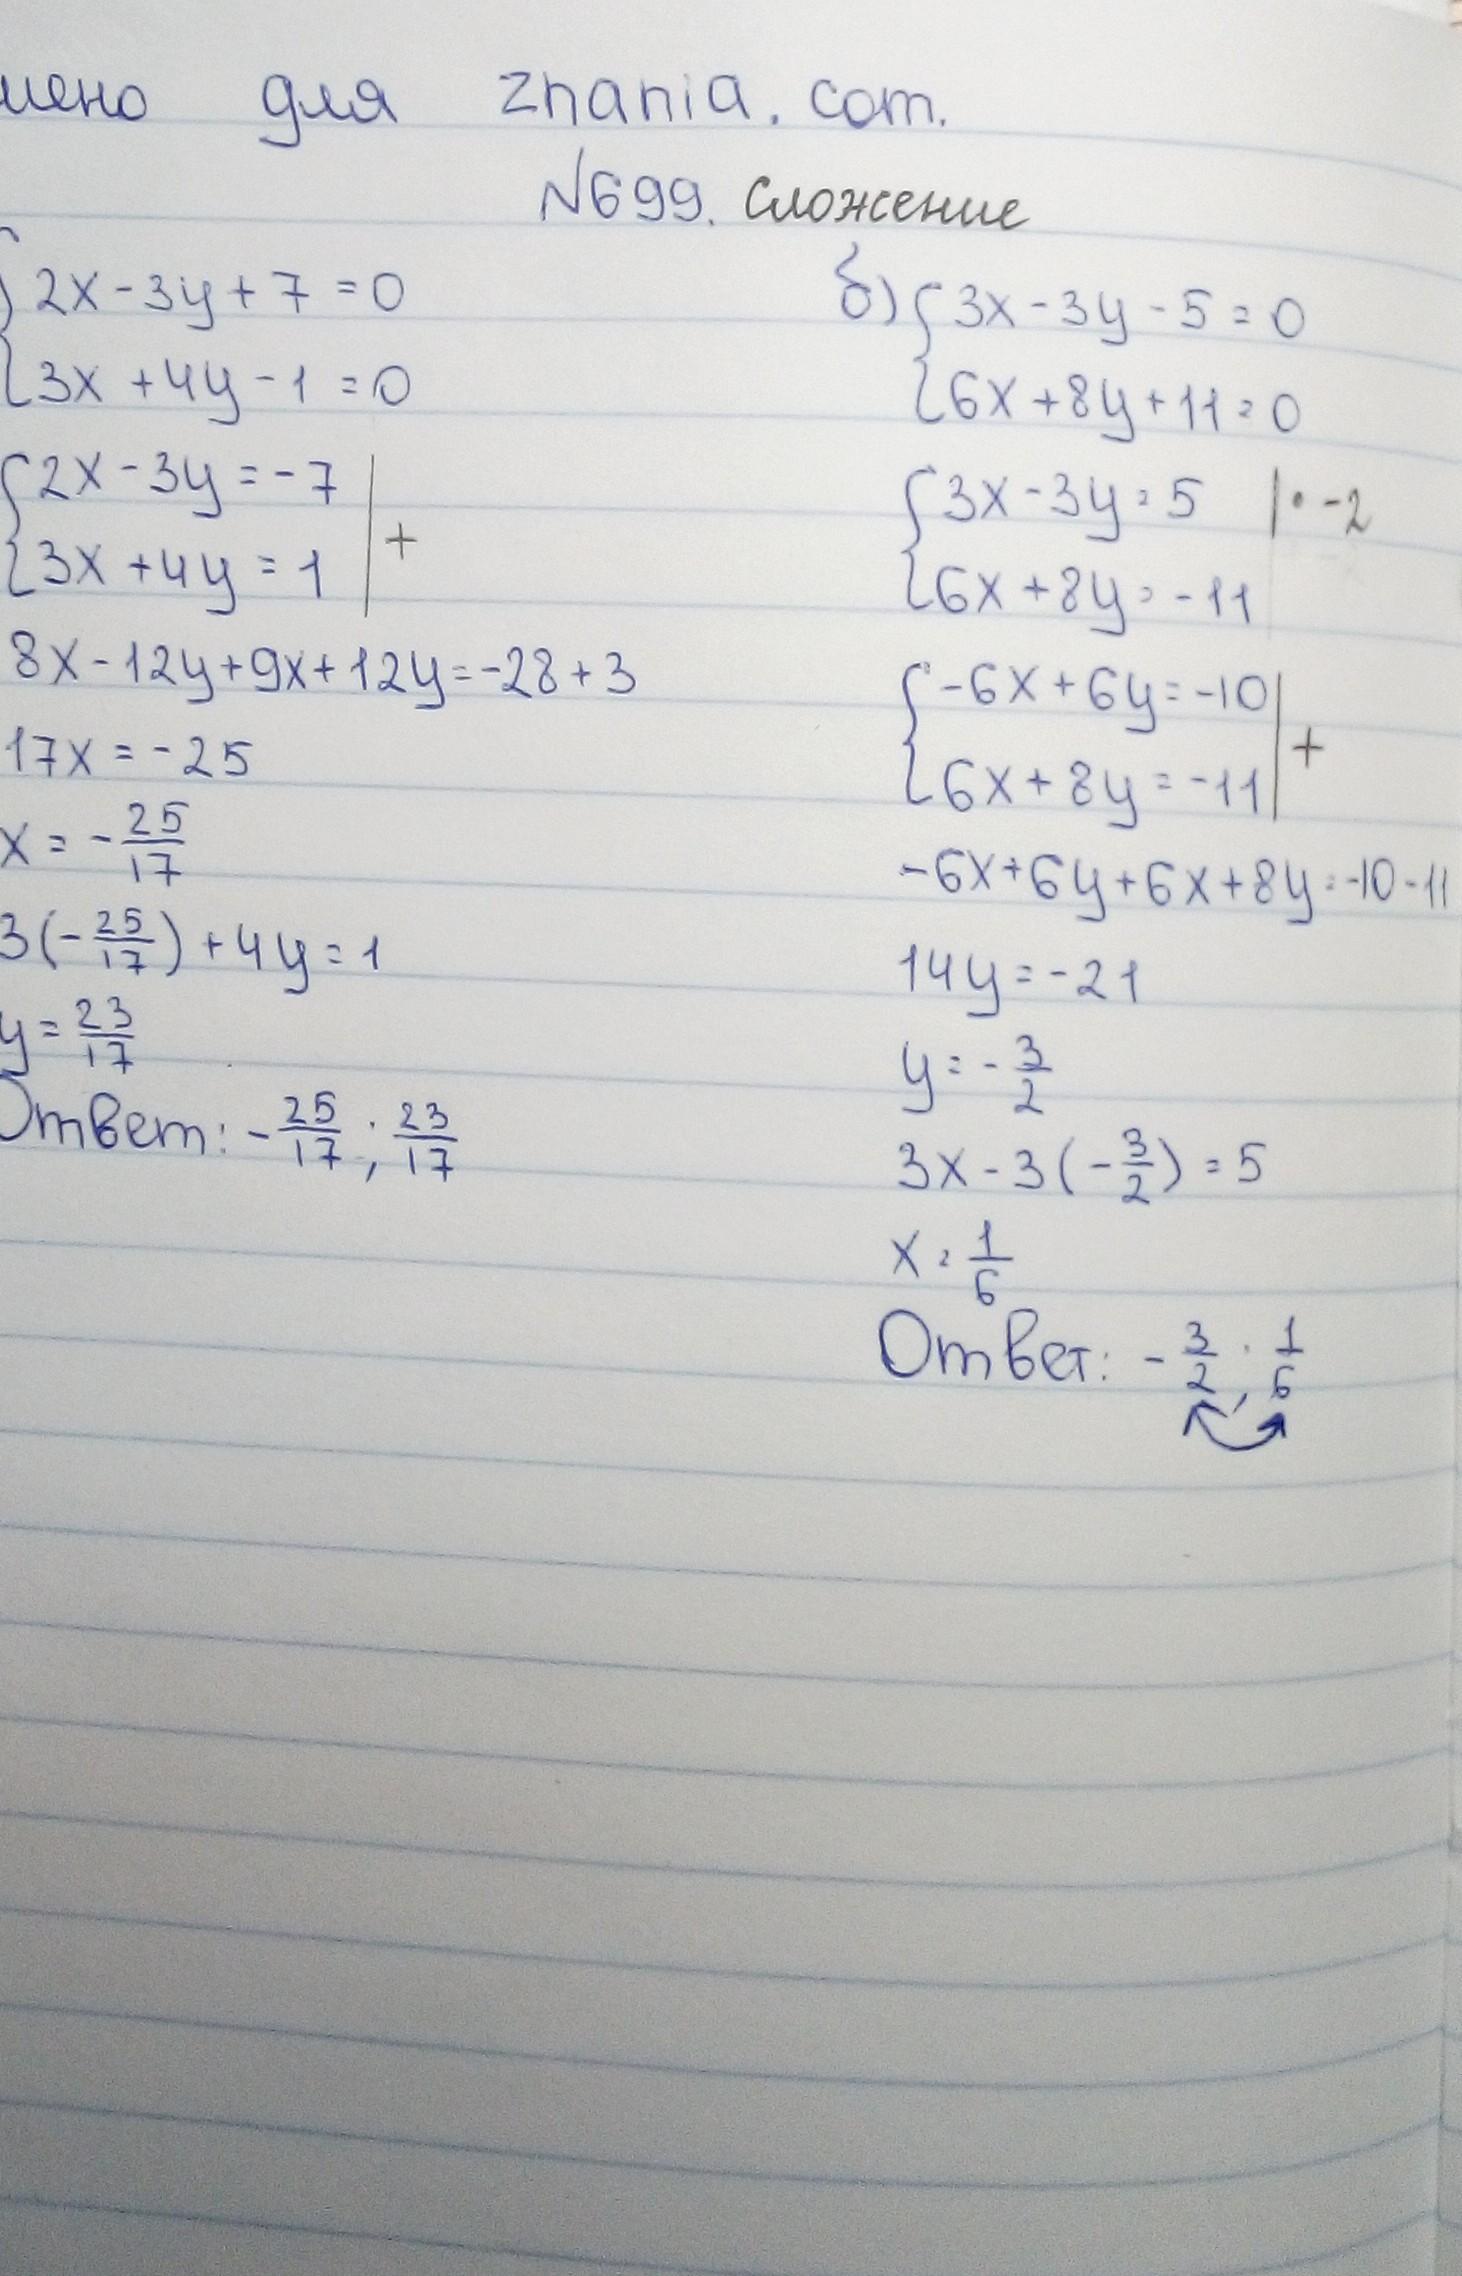 для znania.com.
№699. Сложение
2x-3y+7=0
3x+4y-1=0
{2x-3y=-7
{3x+4y=1 | +
8x-12y+9x+12y=-28+3
17x=-25
x=-25/17
3(-25/17)+4y=1
y=23/17
Ответ: -25/17; 23/17
б) {3x-3y-5=0
{6x+8y+11=0
{3x-3y=5 |·-2
{6x+8y=-11
{-6x+6y=-10
{6x+8y=-11 | +
-6x+6y+6x+8y=-10-11
14y=-21
y=-3/2
3x-3(-3/2)=5
x=1/6
Ответ: -3/2; 1/6